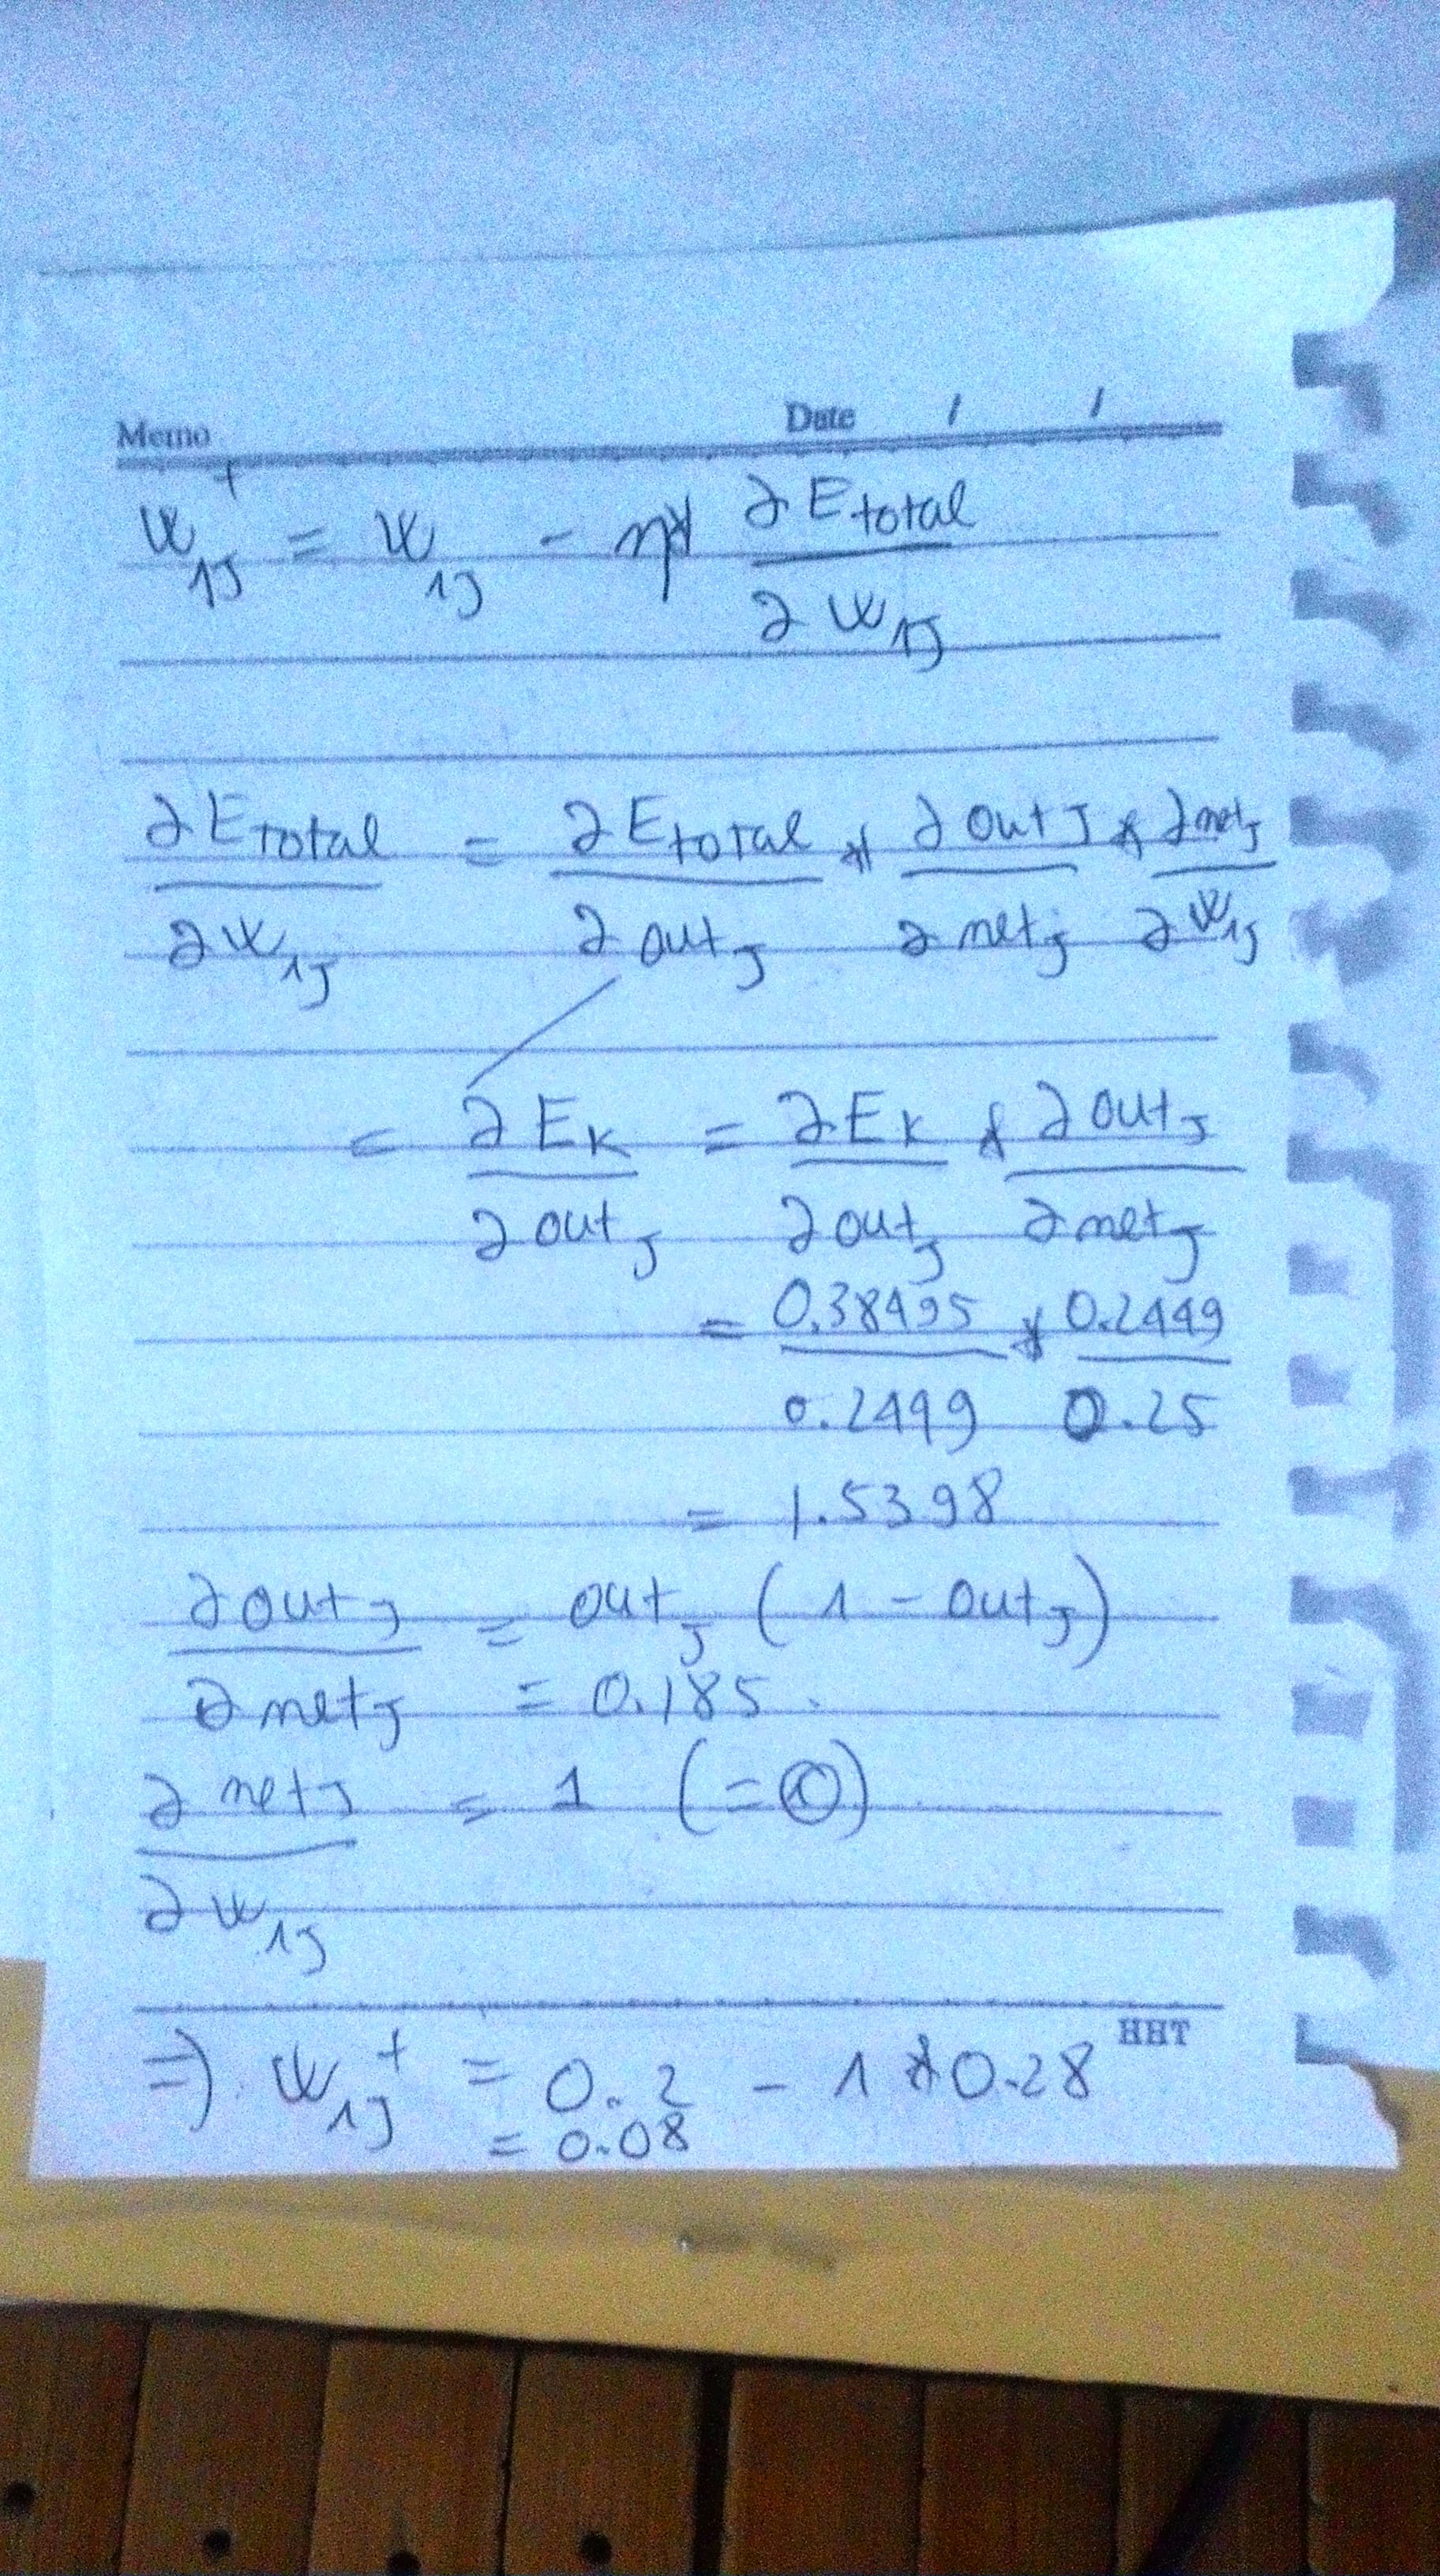 Memo Date / /
w₁ⱼ⁺ = w₁ⱼ - η* ∂E total / ∂w₁ⱼ
∂E Total / ∂w₁ⱼ = ∂E total / ∂outⱼ * ∂outⱼ / ∂netⱼ * ∂netⱼ / ∂w₁ⱼ
= ∂E_K / ∂outⱼ = ∂E_K / ∂outⱼ * ∂outⱼ / ∂netⱼ
= 0.38495 / 0.2499 * 0.2449 / 0.25
= 1.5398
∂outⱼ / ∂netⱼ = outⱼ (1 - outⱼ)
= 0.185
∂netⱼ / ∂w₁ⱼ = 1 (=①)
HHT
=> w₁ⱼ⁺ = 0.2 - 1 * 0.28
= 0.08